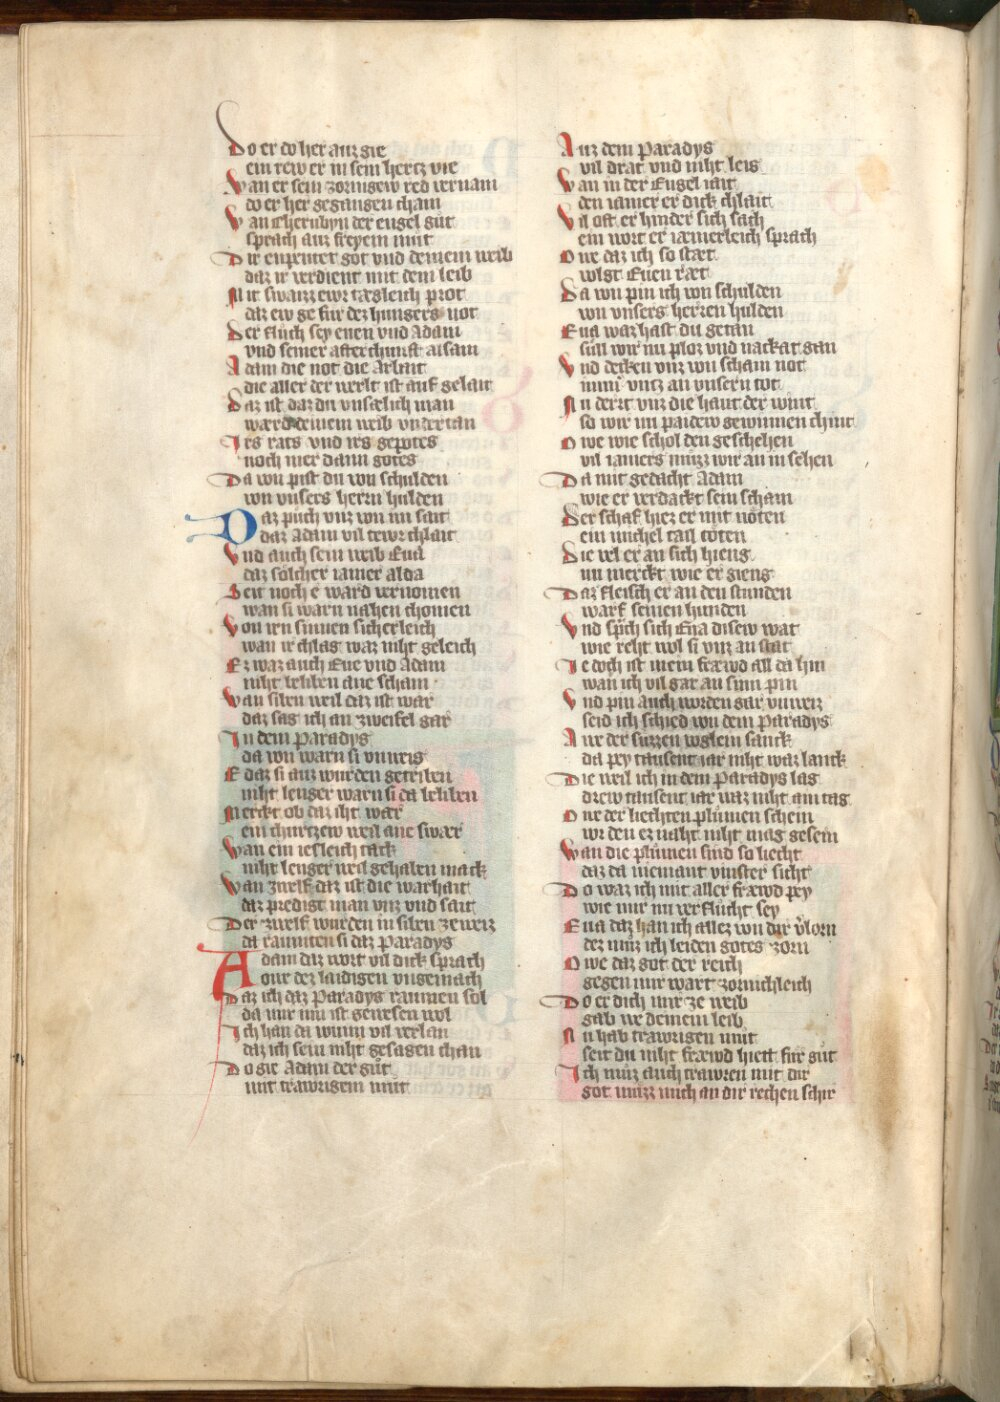 Do er do her auz gie
ein rew er in sein hertz vie
Wan er sein zornigew red vernam
do er her gegangen cham
Wan Cherubyn der engel gut
sprach auz freyem mut
Dir enpeutet got vnd deinem weib
daz ir verdient mit dem leib
Mit swaizz ewr tægleich prot
daz ew ge fur dez hungers not
Der fluch sey euen vnd Adam
vnd seiner after chunft alsam
Adam die not die Arbait
die aller der werlt ist auf gelait
Daz ist daz du vnsælich man
wærd deinem weib vndertan
Irs rats vnd irs gepotes
noch mer dann gotes
Da von pist du von schulden
von vnsers herrn hulden
Daz puch vnz von im sait
daz Adam vil tewr chlait
Vnd auch sein weib Eua
daz solcher iamer alda
Seit noch e ward vernomen
wan si warn nahen chomen
Von irn sinnen sicherleich
wan ir chlag waz niht geleich
Ez waz auch Eue vnd Adam
niht beliben ane scham
Wan siben weil daz ist war
daz sag ich an zweifel gar
In dem paradys
da von warn si vnweis
E daz si auz wurden getriben
niht lenger warn si da beliben
Merckt ob daz iht wær
ein churtzew weil ane swær
Wan ein iesleich tack
niht lenger weil gehaben mack
Wan zwelf daz ist die warhait
daz predigt man vnz vnd sait
Der zwelf wurden in siben ze weiz
da raumten si daz paradys
Adam daz wort vil dick sprach
owe dez laidigen vngemach
Daz ich daz paradys raumen sol
da mir inn ist gewesen wol
Ich han da wunn vil verlan
daz ich sein niht gesagen chan
Do gie Adam der gut
mit trawrigem mut
Auz dem paradys
vil drat vnd niht leis
Wan in der Engel iait
den iamer er dick chlait
Vil oft er hinder sich sach
ein wort er iæmerleich sprach
Owe daz ich so stæt
volgt Euen ræt
Da von pin ich von schulden
von vnsers herren hulden
Eua waz hast du getan
sull wir nu ploz vnd nackat gan
Vnd decken vnz von scham not
imm vntz an vnsern tot
Nu derrt vnz die haut der wint
so wir nu paidew gewinnen chint
Owe wie schol den geschehen
vil iamers muzz wir an in sehen
Da mit gedacht Adam
wie er verdackt sein scham
Der schaf hiez er mit nöten
ein michel tail töten
Die vel er an sich hieng
nu merckt wie er gieng
Daz fleisch er an den stunden
warf seinen hunden
Vnd sprch sich Eua disew wat
wie reht wol si vnz an stat
Ie doch ist mein fræwd all da hin
wan ich vil gar an sinn pin
Vnd pin auch worden gar vnweiz
seid ich schied von dem paradys
Awe der suzzen voglein sanck
da pey tausent iar niht waz lanck
Die weil ich in dem paradys las
drew tausent iar waz niht ain tag
One der liechten plumen schein
vor den ez naht niht mag gesein
Wan die plumen sind so liecht
daz da niemant vinster sicht
Do waz ich mit aller fræwd pey
wie mir nu verflucht sey
Eua daz han ich allez von dir v̓lorn
dez muz ich leiden gotes zorn
Owe daz got der reich
gegen mir wart zornichleich
Do er dich mir ze weib
gab we deinem leib
Nu hab trawrigen mut
seit du niht fræwd hiett fur gut
Ich muz auch trawren mit dir
got muzz mich an dir rechen schir